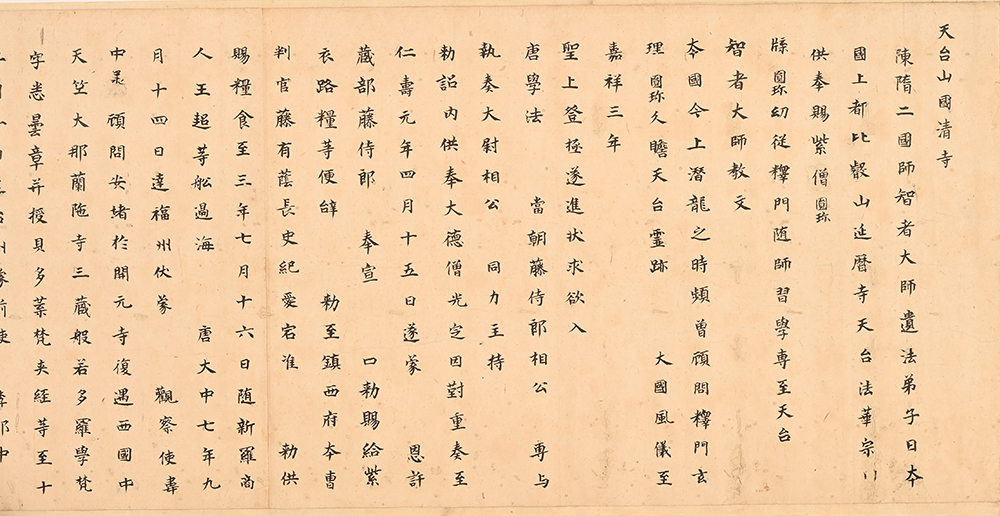 天台山國清寺
陳隋二國師智者大師遺法弟子日本
國上都比叡山延曆寺天台法華宗
供奉賜紫僧圓珎
牒圓珎幼從釋門随師習學專至天台
智者大師教文
本國今上潜龍之時頻曽顧問釋門玄
理圓珎久瞻天台靈跡　大國風儀至
嘉祥三年
聖上登極遂進状求欲入
唐學法　當朝藤侍郎相公　專与
執奏大尉相公　同力主持
勅詔内供奉大德僧光定因對重奏至
仁壽元年四月十五日遂蒙　恩許
藏部藤侍郎　奉宣　口勅賜給紫
衣路粮等便辝　勅至鎮西府本曹
判官藤有蔭長史紀愛宕准　勅供
賜糧食至三年七月十六日随新羅商
人王超等舩過海　唐大中七年九
月十四日達福州伏蒙　觀察使韋
中丞顧問安堵於開元寺復遇西國中
天竺大那蘭陁寺三藏般若多羅學梵
字悉曇章并授貝多葉梵夾経等至十